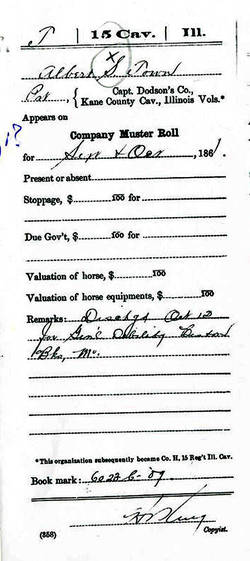 T | 15 Cav. | Ill.
x
Albert S. Town
Pvt, { Capt. Dodson's Co.,
Kane County Cav., Illinois Vols.*
Appears on
Company Muster Roll
for Sept & Oct, 1861.
Present or absent
Stoppage, $ 100 for
Due Gov't, $ 100 for
Valuation of horse, $ 100
Valuation of horse equipments, $ 100
Remarks: Dischgd Oct 12
for Gen'l Disability Benton
Bks, Mo.
*This organization subsequently became Co. H, 15 Reg't Ill. Cav.
Book mark: 
(358)
Copyist.